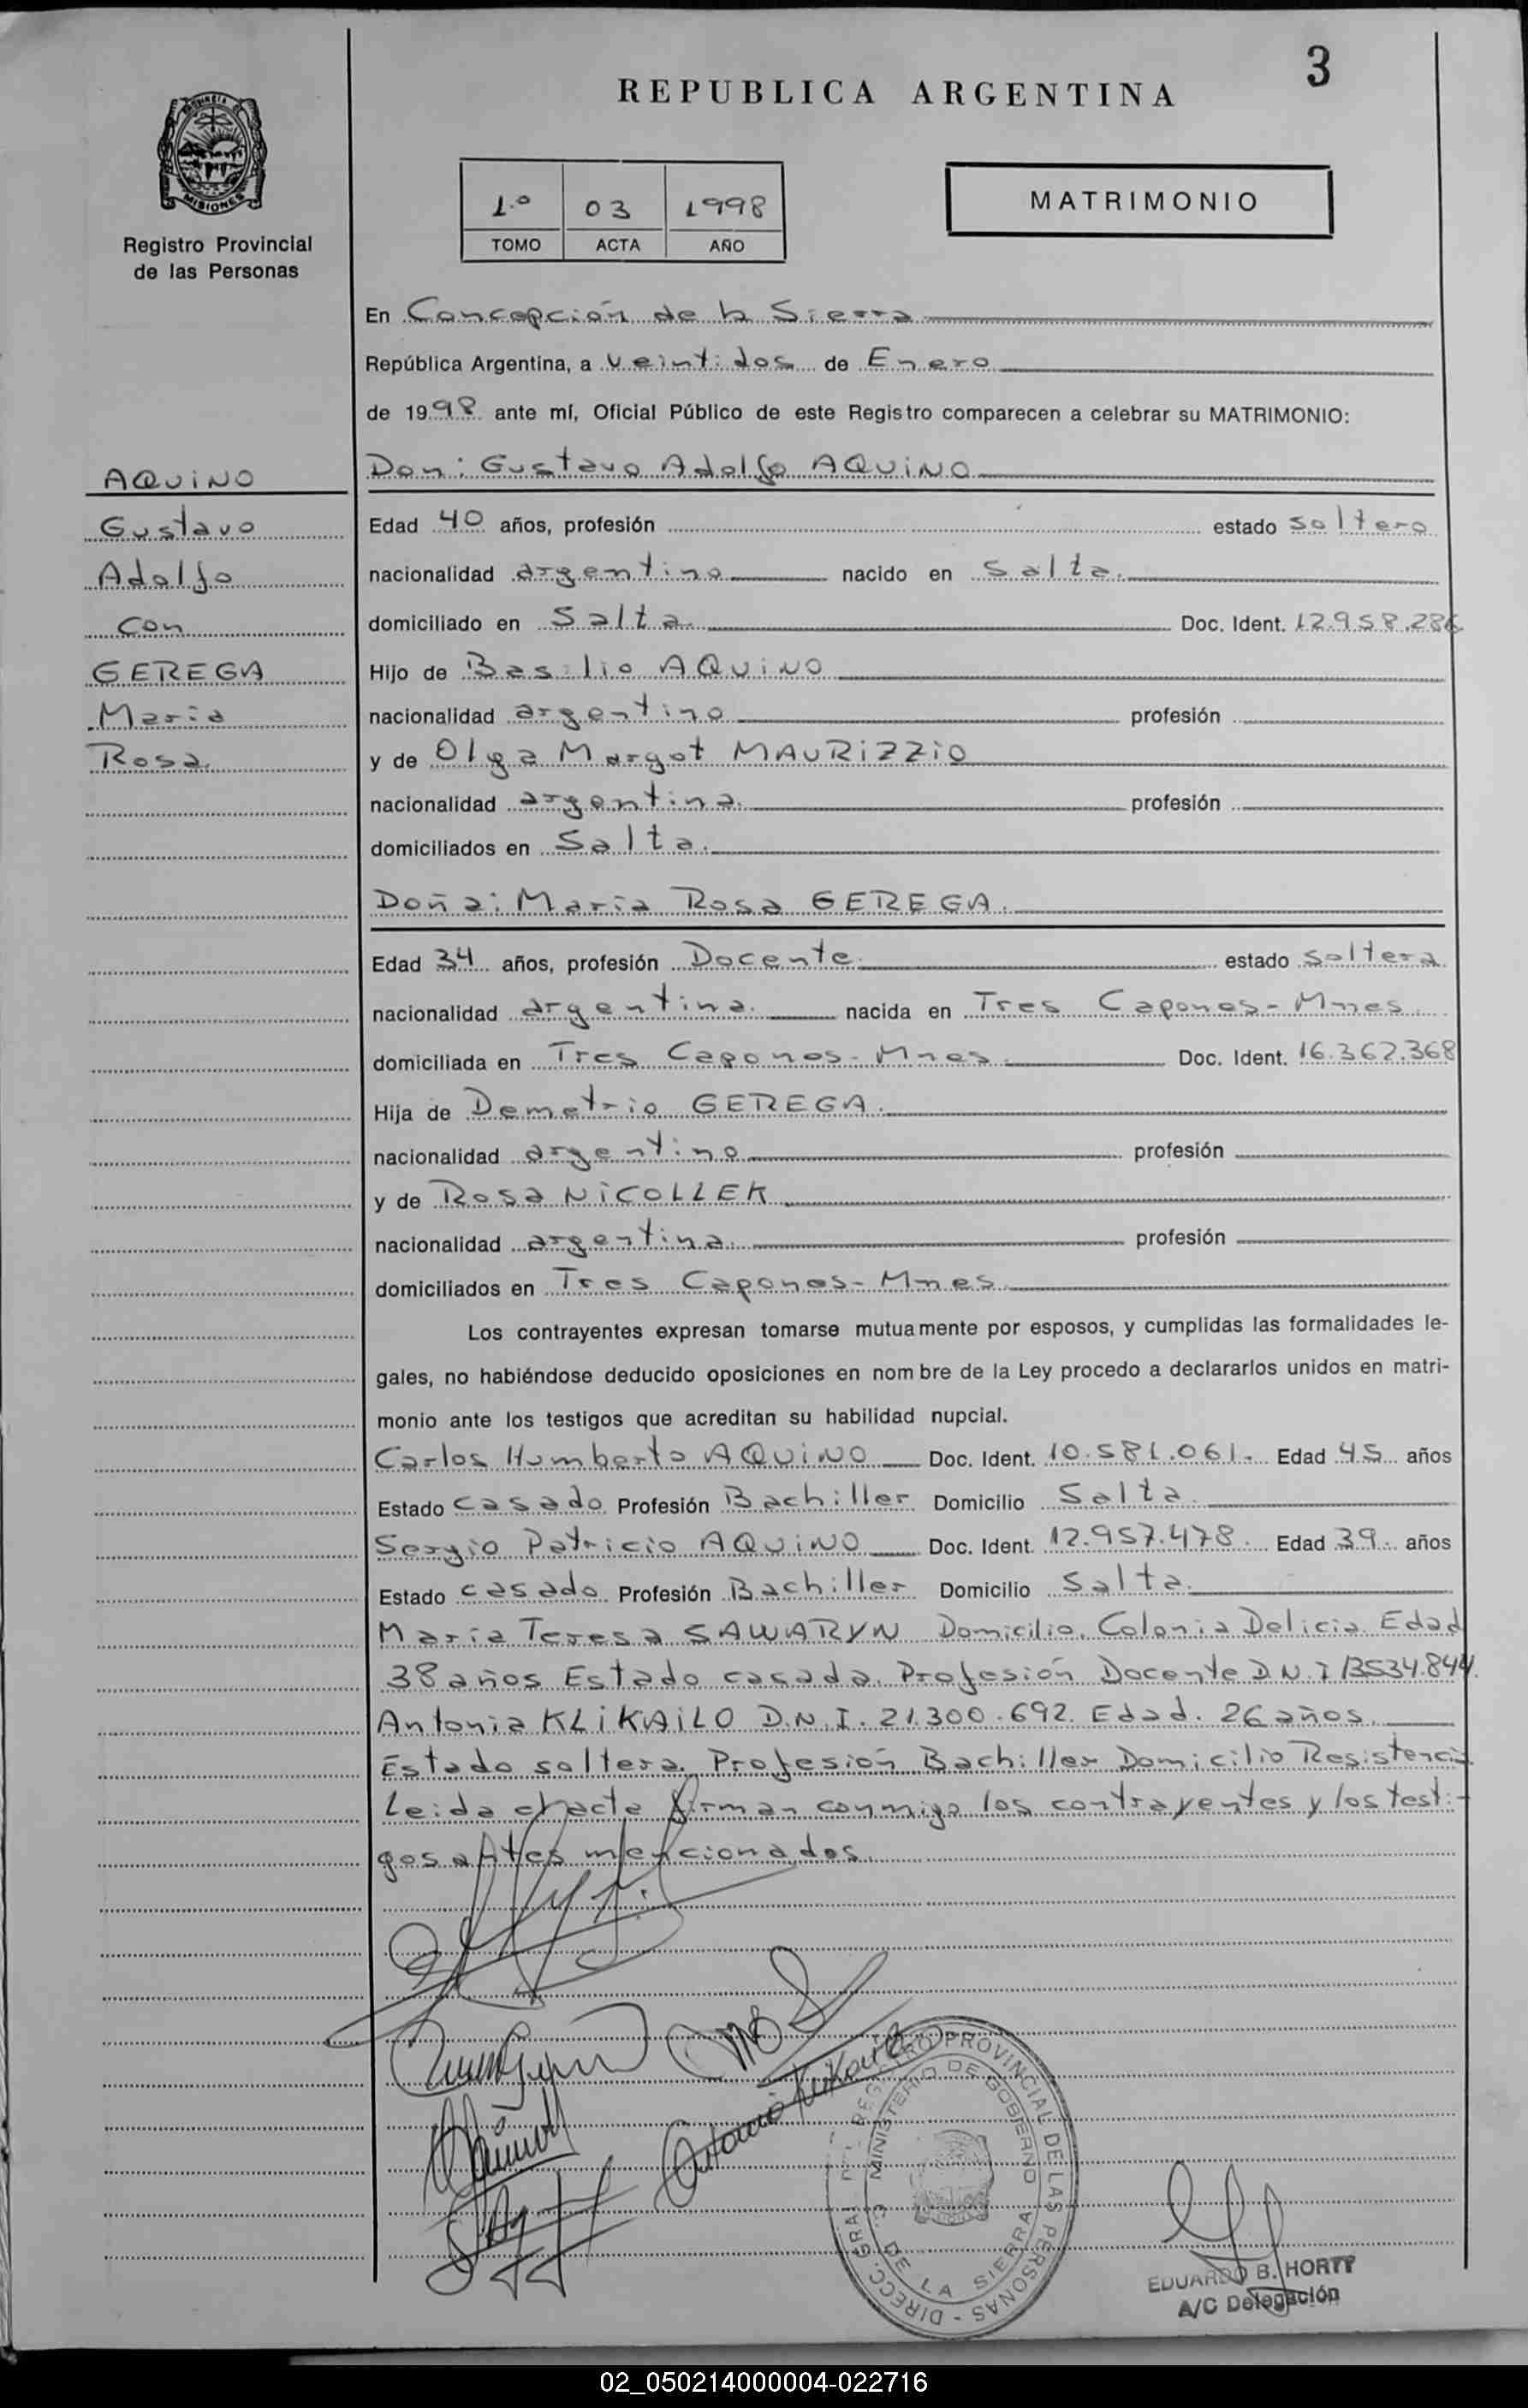 3
REPUBLICA ARGENTINA
PROVINCIA DE
MISIONES
Registro Provincial
de las Personas
1.º 03 1998
TOMO ACTA AÑO
MATRIMONIO
En Concepción de la Sierra
República Argentina, a veintidos de Enero
de 1998 ante mí, Oficial Público de este Registro comparecen a celebrar su MATRIMONIO:
Don: Gustavo Adolfo AQUINO
AQUINO
Gustavo
Adolfo
con
GEREGA
Maria
Rosa
Edad 40 años, profesión estado soltero
nacionalidad argentino nacido en Salta.
domiciliado en Salta. Doc. Ident. 12.958.286
Hijo de Basilio AQUINO
nacionalidad argentino profesión
y de Olga Margot MAURIZZIO
nacionalidad argentina. profesión
domiciliados en Salta.
Doña: Maria Rosa GEREGA.
Edad 34 años, profesión Docente. estado soltera.
nacionalidad argentina. nacida en Tres Capones - Mnes.
domiciliada en Tres Capones - Mnes. Doc. Ident. 16.362.368
Hija de Demetrio GEREGA.
nacionalidad argentino profesión
y de Rosa NICOLLEK
nacionalidad argentina. profesión
domiciliados en Tres Capones - Mnes.
Los contrayentes expresan tomarse mutuamente por esposos, y cumplidas las formalidades le-
gales, no habiéndose deducido oposiciones en nombre de la Ley procedo a declararlos unidos en matri-
monio ante los testigos que acreditan su habilidad nupcial.
Carlos Humberto AQUINO Doc. Ident. 10.581.061. Edad 45 años
Estado casado Profesión Bachiller Domicilio Salta.
Sergio Patricio AQUINO Doc. Ident. 12.957.478. Edad 39. años
Estado casado Profesión Bachiller Domicilio Salta.
Maria Teresa SAWARYN Domicilio. Colonia Delicia. Edad
38 años Estado casada. Profesión Docente D.N.I 13534.844.
Antonia KLIKAILO D.N.I. 21.300.692. Edad. 26 años.
Estado soltera. Profesión Bachiller Domicilio Resistencia
Leida el acta firman conmigo los contrayentes y los testi-
gos antes mencionados.
DIRECC. GRAL. DEL REGISTRO PROVINCIAL DE LAS PERSONAS
MINISTERIO DE GOBERNO
C. DE LA SIERRA
EDUARDO B. HORTT
A/C Delegación
02_050214000004-022716